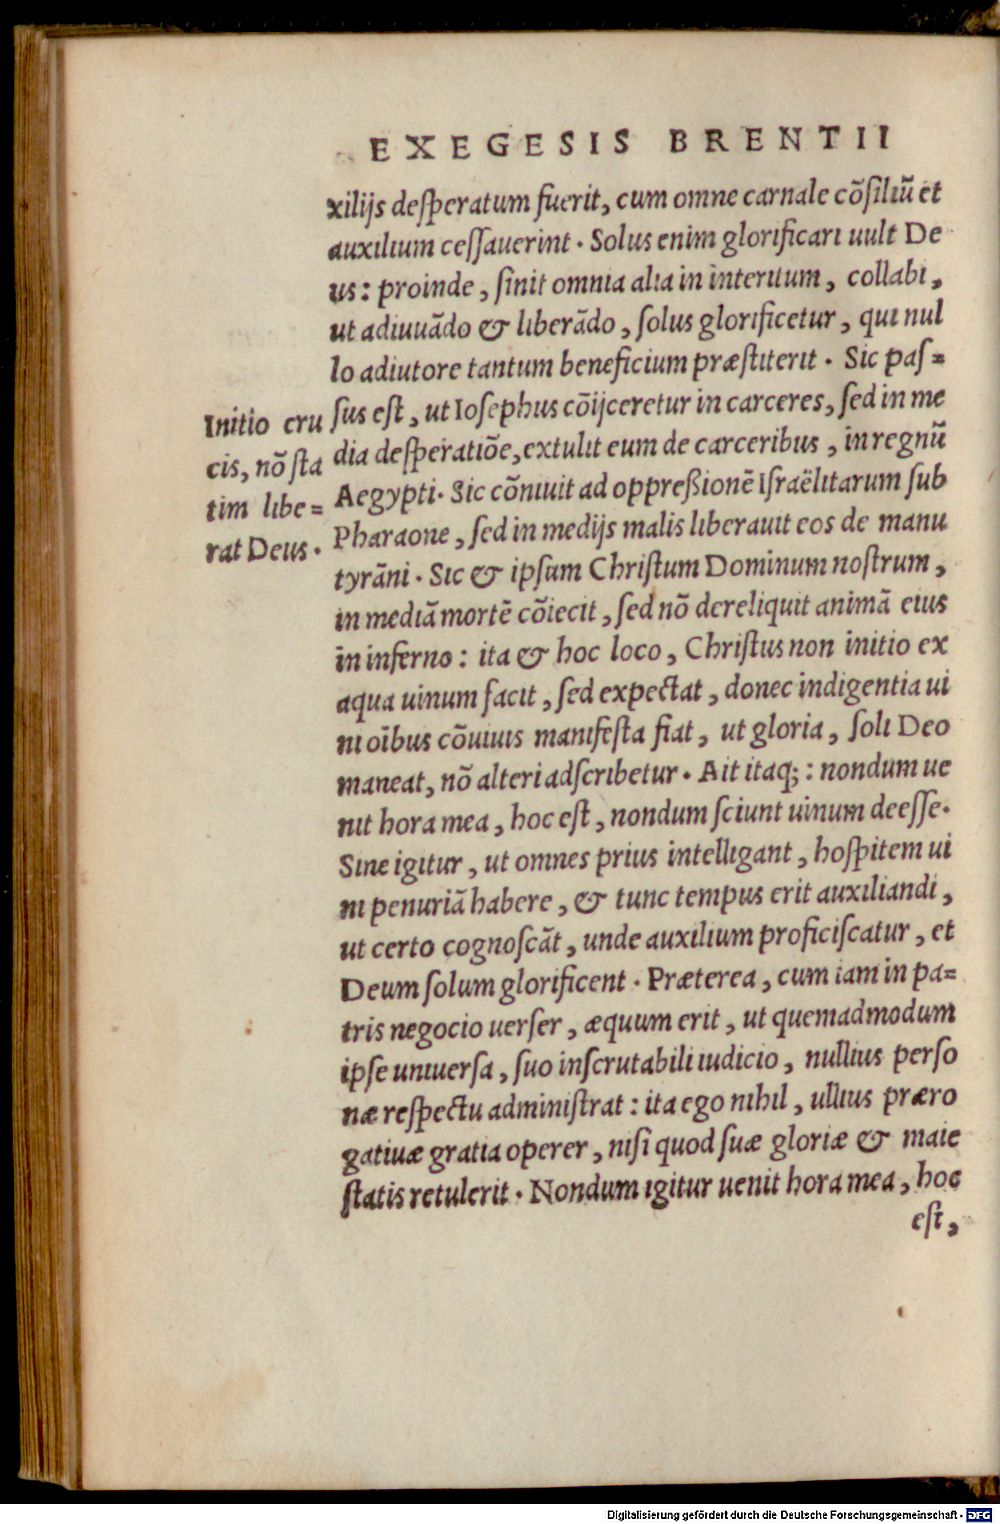 EXEGESIS BRENTII
xilijs deſperatum fuerit, cum omne carnale cõſiliũ et
auxilium ceſſauerint. Solus enim glorificari uult De
us: proinde, ſinit omnia alia in interitum, collabi,
ut adiuuãdo & liberãdo, ſolus glorificetur, qui nul
lo adiutore tantum beneficium præſtiterit. Sic paſ=
ſus eſt, ut Ioſephus cõijceretur in carceres, ſed in me
dia deſperatiõe, extulit eum de carceribus, in regnũ
Aegypti. Sic cõniuit ad oppreßionẽ Iſraëlitarum ſub
Pharaone, ſed in medijs malis liberauit eos de manu
tyrãni. Sic & ipſum Chriſtum Dominum noſtrum,
in mediã mortẽ cõiecit, ſed nõ dereliquit animã eius
in inferno: ita & hoc loco, Chriſtus non initio ex
aqua uinum facit, ſed expectat, donec indigentia ui
ni oĩbus cõuiuis manifeſta fiat, ut gloria, ſoli Deo
maneat, nõ alteri adſcribetur. Ait itaq;: nondum ue
nit hora mea, hoc eſt, nondum ſciunt uinum deeſſe.
Sine igitur, ut omnes prius intelligant, hoſpitem ui
ni penuriã habere, & tunc tempus erit auxiliandi,
ut certo cognoſcãt, unde auxilium proficiſcatur, et
Deum ſolum glorificent. Præterea, cum iam in pa=
tris negocio uerſer, æquum erit, ut quemadmodum
ipſe uniuerſa, ſuo inſcrutabili iudicio, nullius perſo
næ reſpectu adminiſtrat: ita ego nihil, ullius præro
gatiuæ gratia operer, niſi quod ſuæ gloriæ & maie
ſtatis retulerit. Nondum igitur uenit hora mea, hoc
eſt,
Initio cru
cis, nõ ſta
tim libe=
rat Deus.
Digitalisierung gefördert durch die Deutsche Forschungsgemeinschaft - DFG